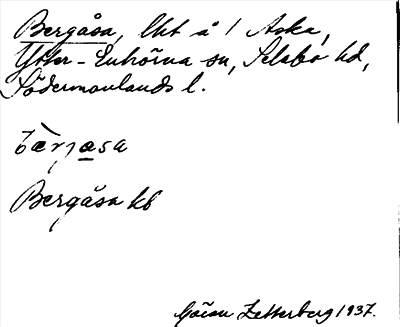 Bergåsa, lht å 1 Aska,
Ytter-Enhörna sn, Selebo hd,
Södermanlands l.
bæ̀rjasa
Bergåsa kb
Göran Zetterberg 1937.